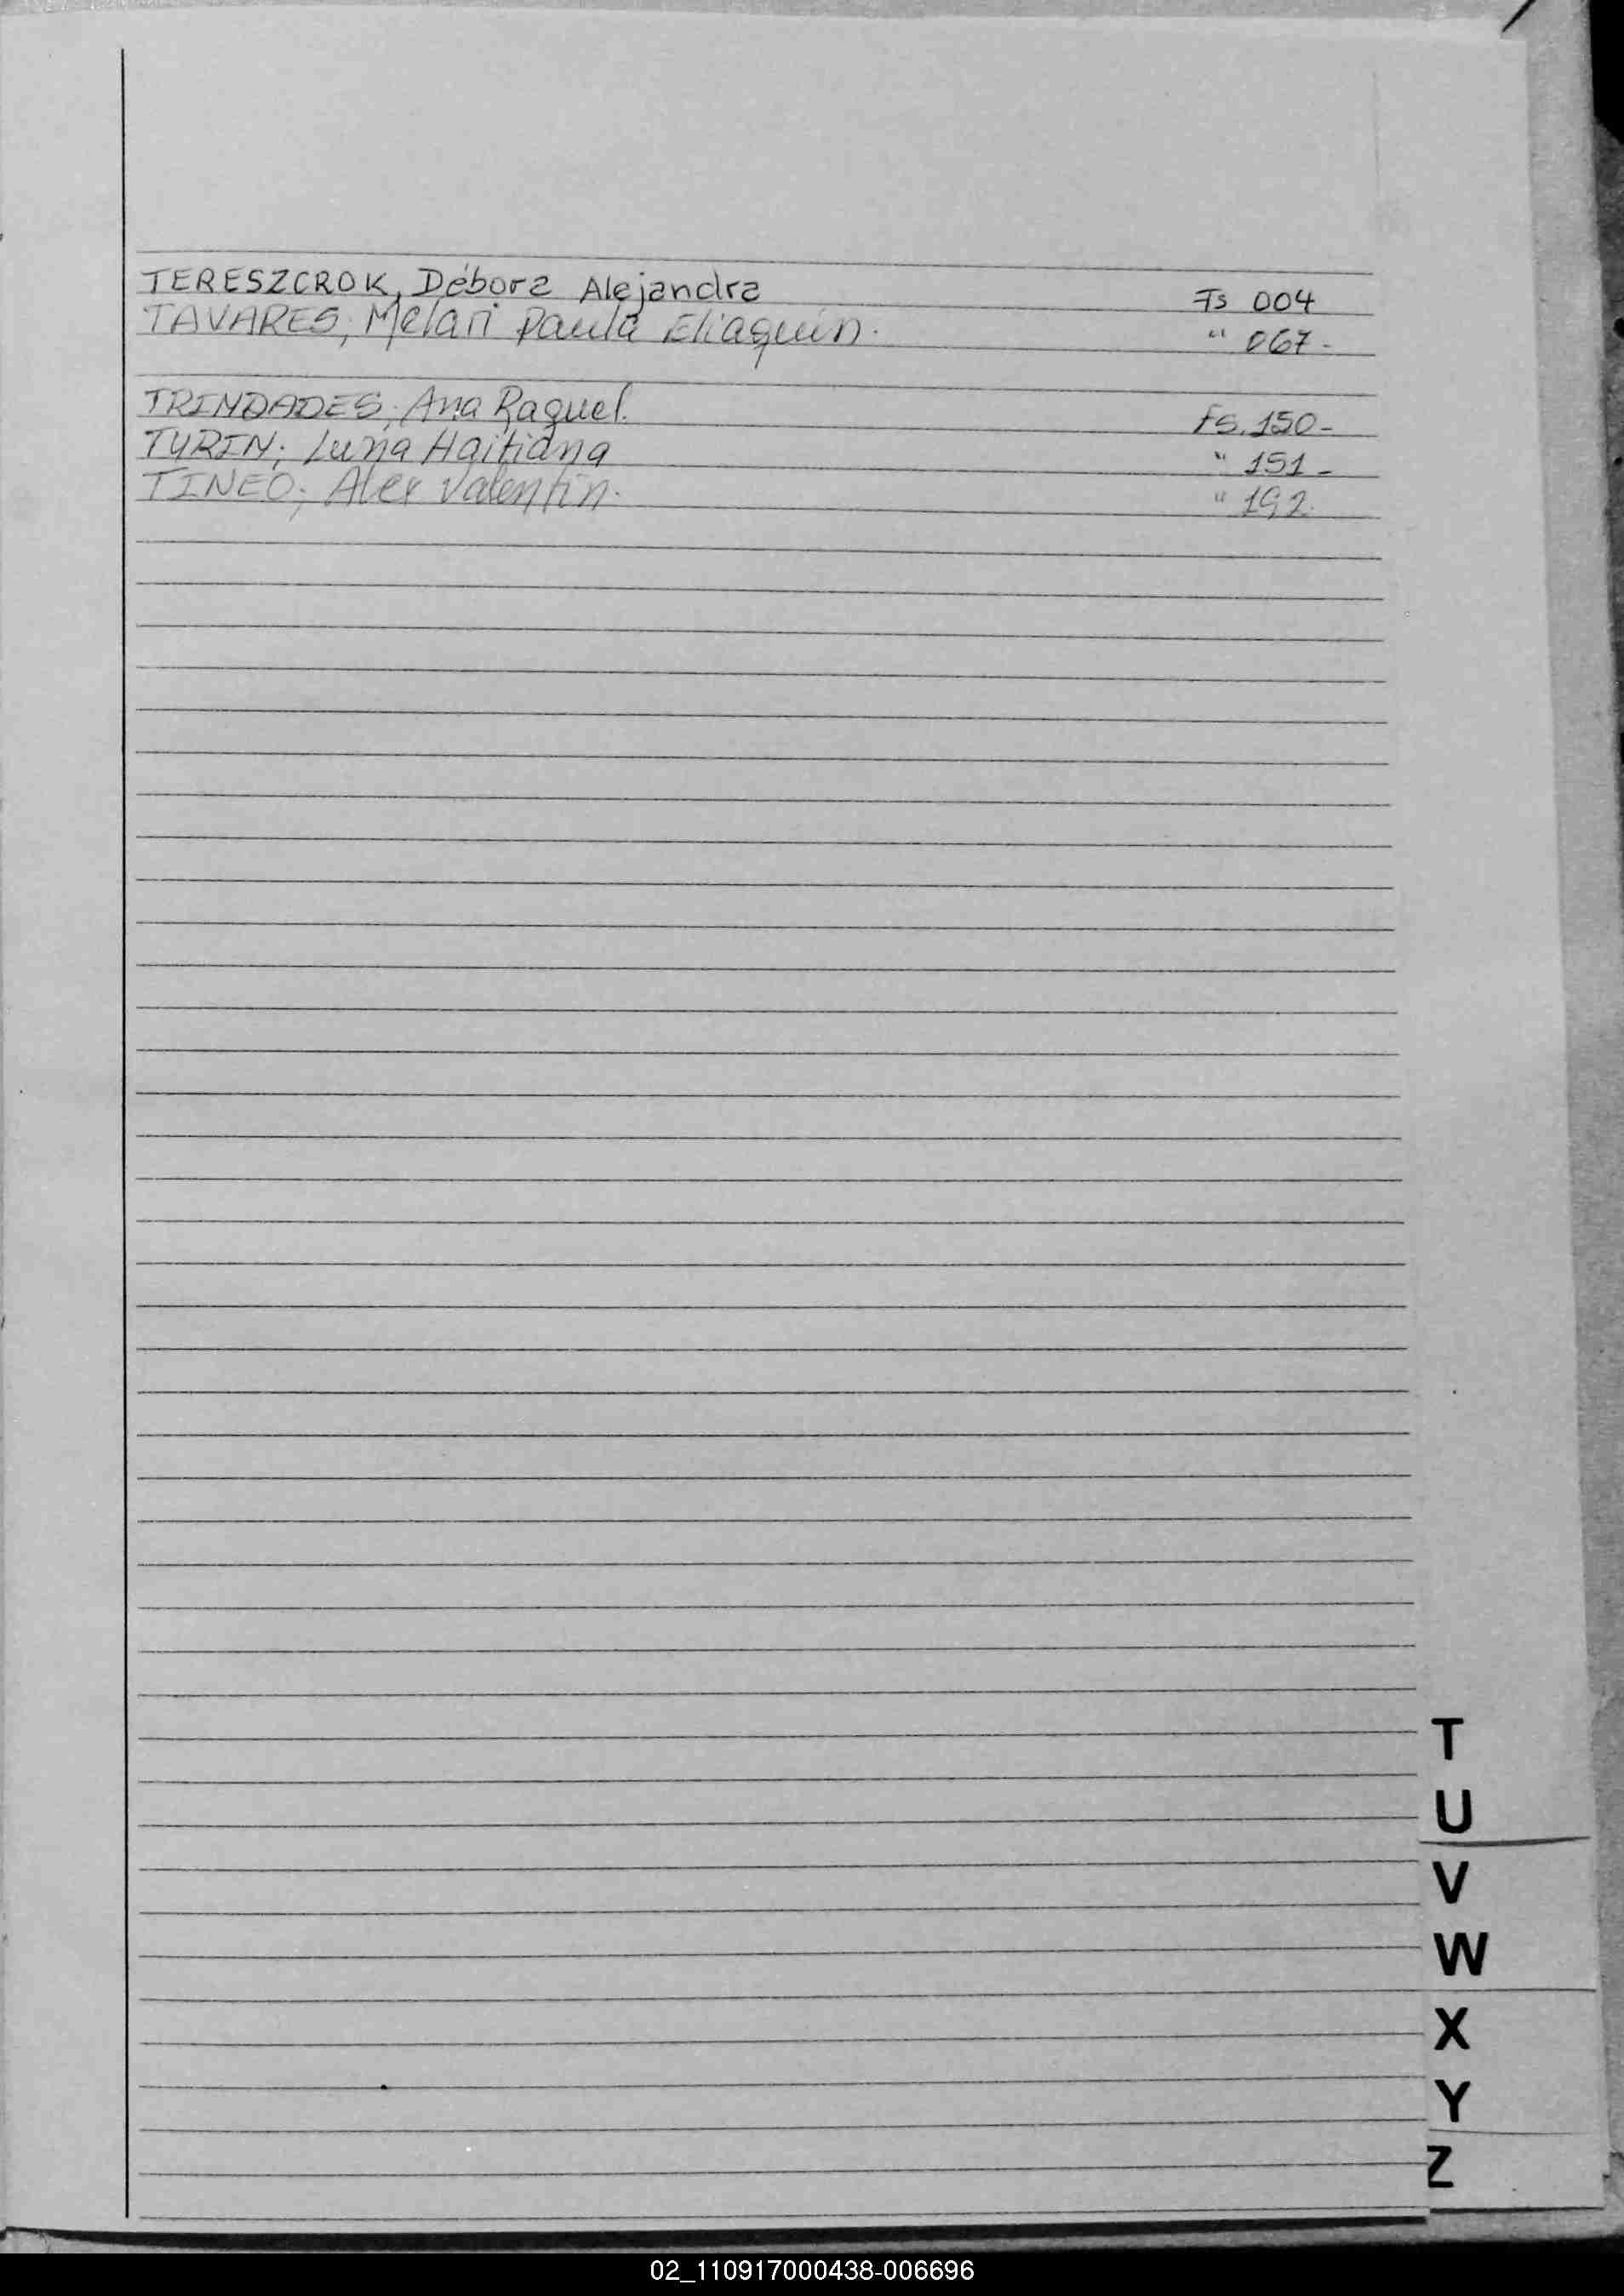 TERESZCROK, Débora Alejandra Fs 004
TAVARES; Melani Paula Eliaquin. " 067-
TRINDADES; Ana Raquel. Fs. 150-
TURIN; Luna Haitiana " 151-
TINEO; Alex Valentin. " 192.
T
U
V
W
X
Y
Z
02_110917000438-006696